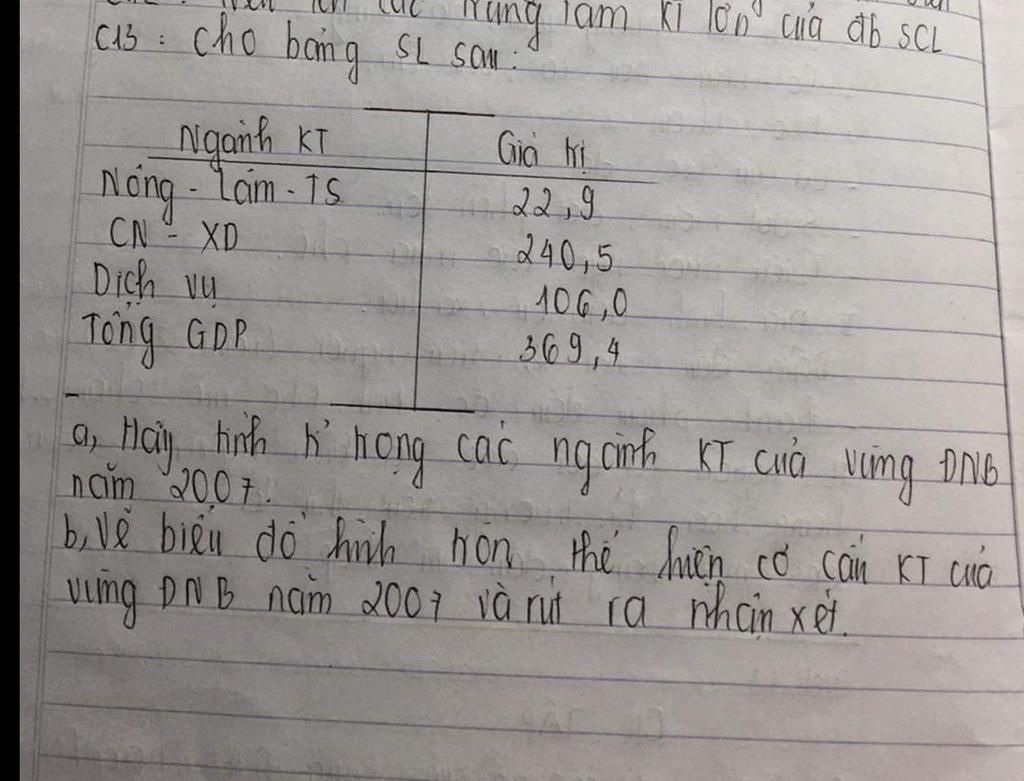 các trung tâm kt lớn của đb SCL
C13 : Cho bảng SL sau :
Ngành KT Giá trị
Nông - Lâm - TS 22,9
CN - XD 240,5
Dịch vụ 106,0
Tổng GDP 369,4
a, Hãy tính tỉ trọng các ngành KT của vùng ĐNB
năm 2007.
b, Vẽ biểu đồ hình tròn thể hiện cơ cấu KT của
vùng ĐNB năm 2007 và rút ra nhận xét.